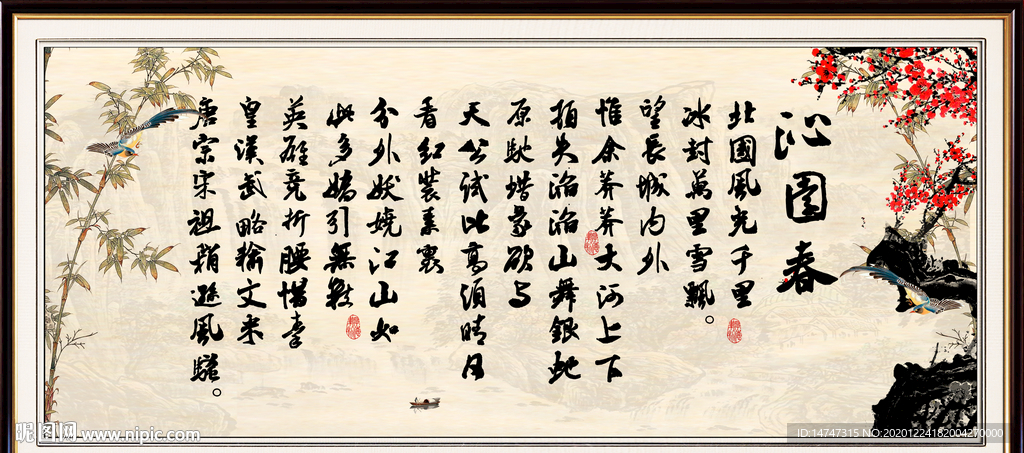 沁園春
北國風光千里
冰封萬里雪飄。
望長城内外
惟余莽莽大河上下
頓失滔滔山舞銀蛇
原馳蜡象欲与
天公試比高須晴日
看紅裝素裹
分外妖嬈江山如
此多嬌引無數
英雄竞折腰惜秦
皇漢武略輸文采
唐宗宋祖稍遜風騷。
昵图网 www.nipic.com
ID:14747315 NO:20201224182004270000